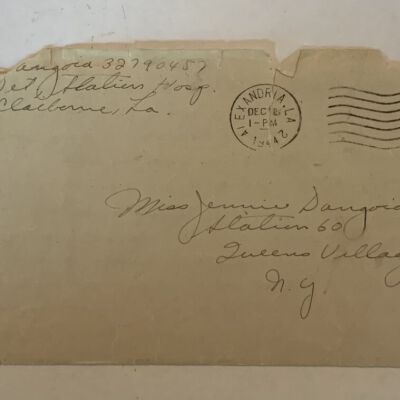 Dangoia 32790457
Det, Station Hosp.
Claiborne, La.
ALEXANDRIA, LA.
DEC
1-PM
1942
Miss Jennie Dangoia
Station 60
Queens Village
N.Y.